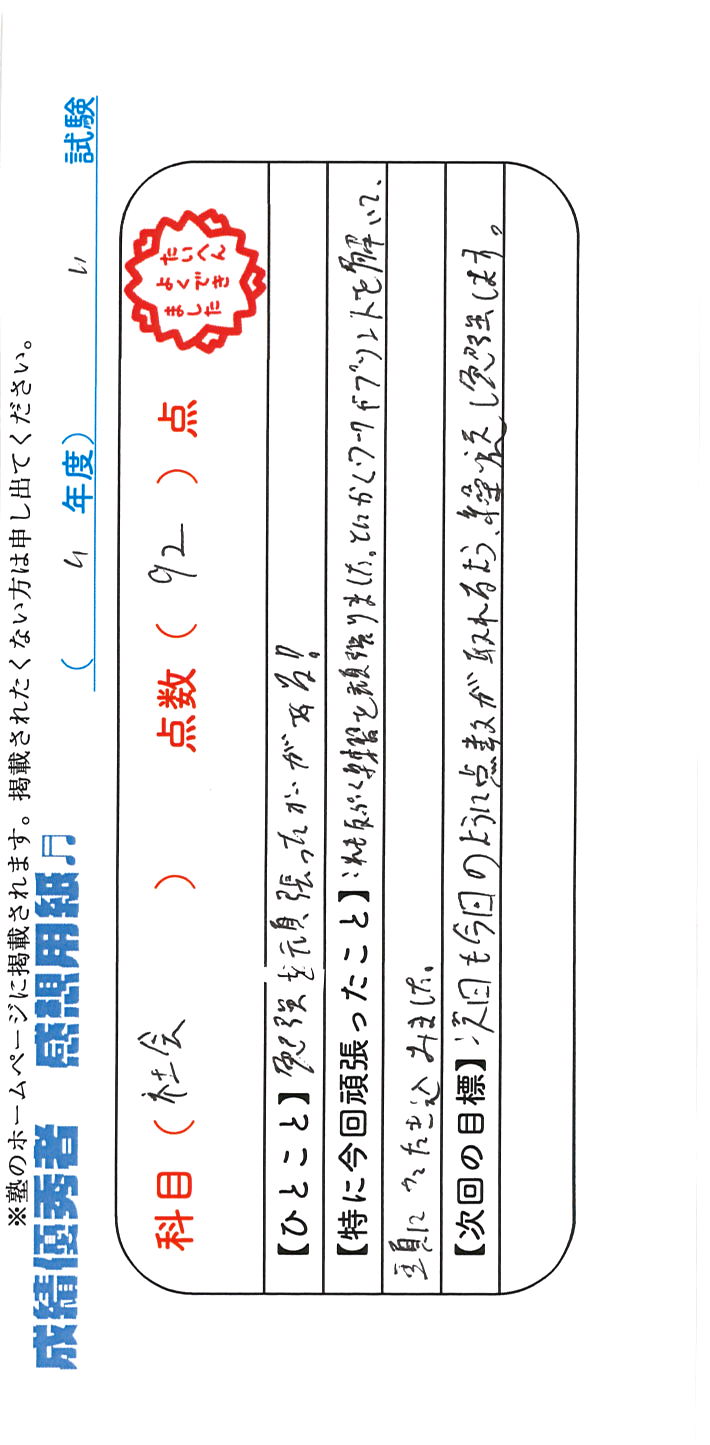 ※塾のホームページに掲載されます。掲載されたくない方は申し出てください。
成績優秀者 感想用紙♬ ( 年度) 試験
科目 ( 社会 ) 点数 ( 92 ) 点
たいへん
よくでき
ました
【ひとこと】勉強を頑張ったかいがある!!
【特に今回頑張ったこと】: 練習を頑張りました。とにかくワークやプリントを解いて、
頭にたたき込みました。
【次回の目標】: 次回も今回のように点数が取れるよう、繰り返し勉強します。